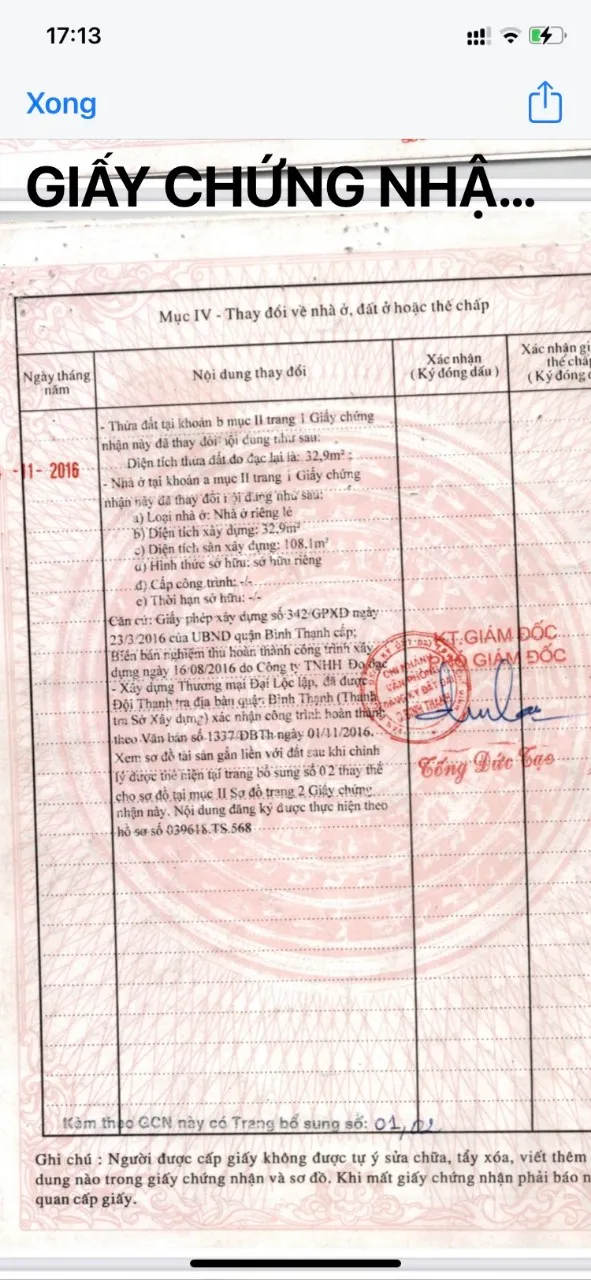 17:13
Xong
GIẤY CHỨNG NHẬ...
Mục IV - Thay đổi về nhà ở, đất ở hoặc thế chấp
Ngày tháng năm
Nội dung thay đổi
Xác nhận
( Ký đóng dấu )
Xác nhận gi
thế chấ
( Ký đóng
-11- 2016
- Thửa đất tại khoản b mục II trang 1 Giấy chứng
nhận này đã thay đổi nội dung như sau:
Diện tích thửa đất đo đạc lại là: 32,9m² ;
- Nhà ở tại khoản a mục II trang 1 Giấy chứng
nhận này đã thay đổi nội dung như sau:
a) Loại nhà ở: Nhà ở riêng lẻ
b) Diện tích xây dựng: 32,9m²
c) Diện tích sàn xây dựng: 108,1m²
d) Hình thức sở hữu: sở hữu riêng
đ) Cấp công trình: -/-
e) Thời hạn sở hữu: -/-
Căn cứ: Giấy phép xây dựng số 342/GPXD ngày
23/3/2016 của UBND quận Bình Thạnh cấp;
Biên bản nghiệm thu hoàn thành công trình xây
dựng ngày 16/08/2016 do Công ty TNHH Đo đạc
- Xây dựng Thương mại Đại Lộc lập, đã được
Đội Thanh tra địa bàn quận Bình Thạnh (Thanh
tra Sở Xây dựng) xác nhận công trình hoàn thành
theo Văn bản số 1337/ĐBTh ngày 01/11/2016.
Xem sơ đồ tài sản gắn liền với đất sau khi chỉnh
lý được thể hiện tại trang bổ sung số 02 thay thế
cho sơ đồ tại mục II Sơ đồ trang 2 Giấy chứng
nhận này. Nội dung đăng ký được thực hiện theo
hồ sơ số 039618.TS.568
KT.GIÁM ĐỐC
PHÓ GIÁM ĐỐC
CHI NHÁNH
VĂN PHÒNG
ĐĂNG KÝ ĐẤT ĐAI
Q.BÌNH THẠNH
Tống Đức Tạo
Kèm theo GCN này có Trang bổ sung số: 01, 02
Ghi chú : Người được cấp giấy không được tự ý sửa chữa, tẩy xóa, viết thêm
dung nào trong giấy chứng nhận và sơ đồ. Khi mất giấy chứng nhận phải báo n
quan cấp giấy.